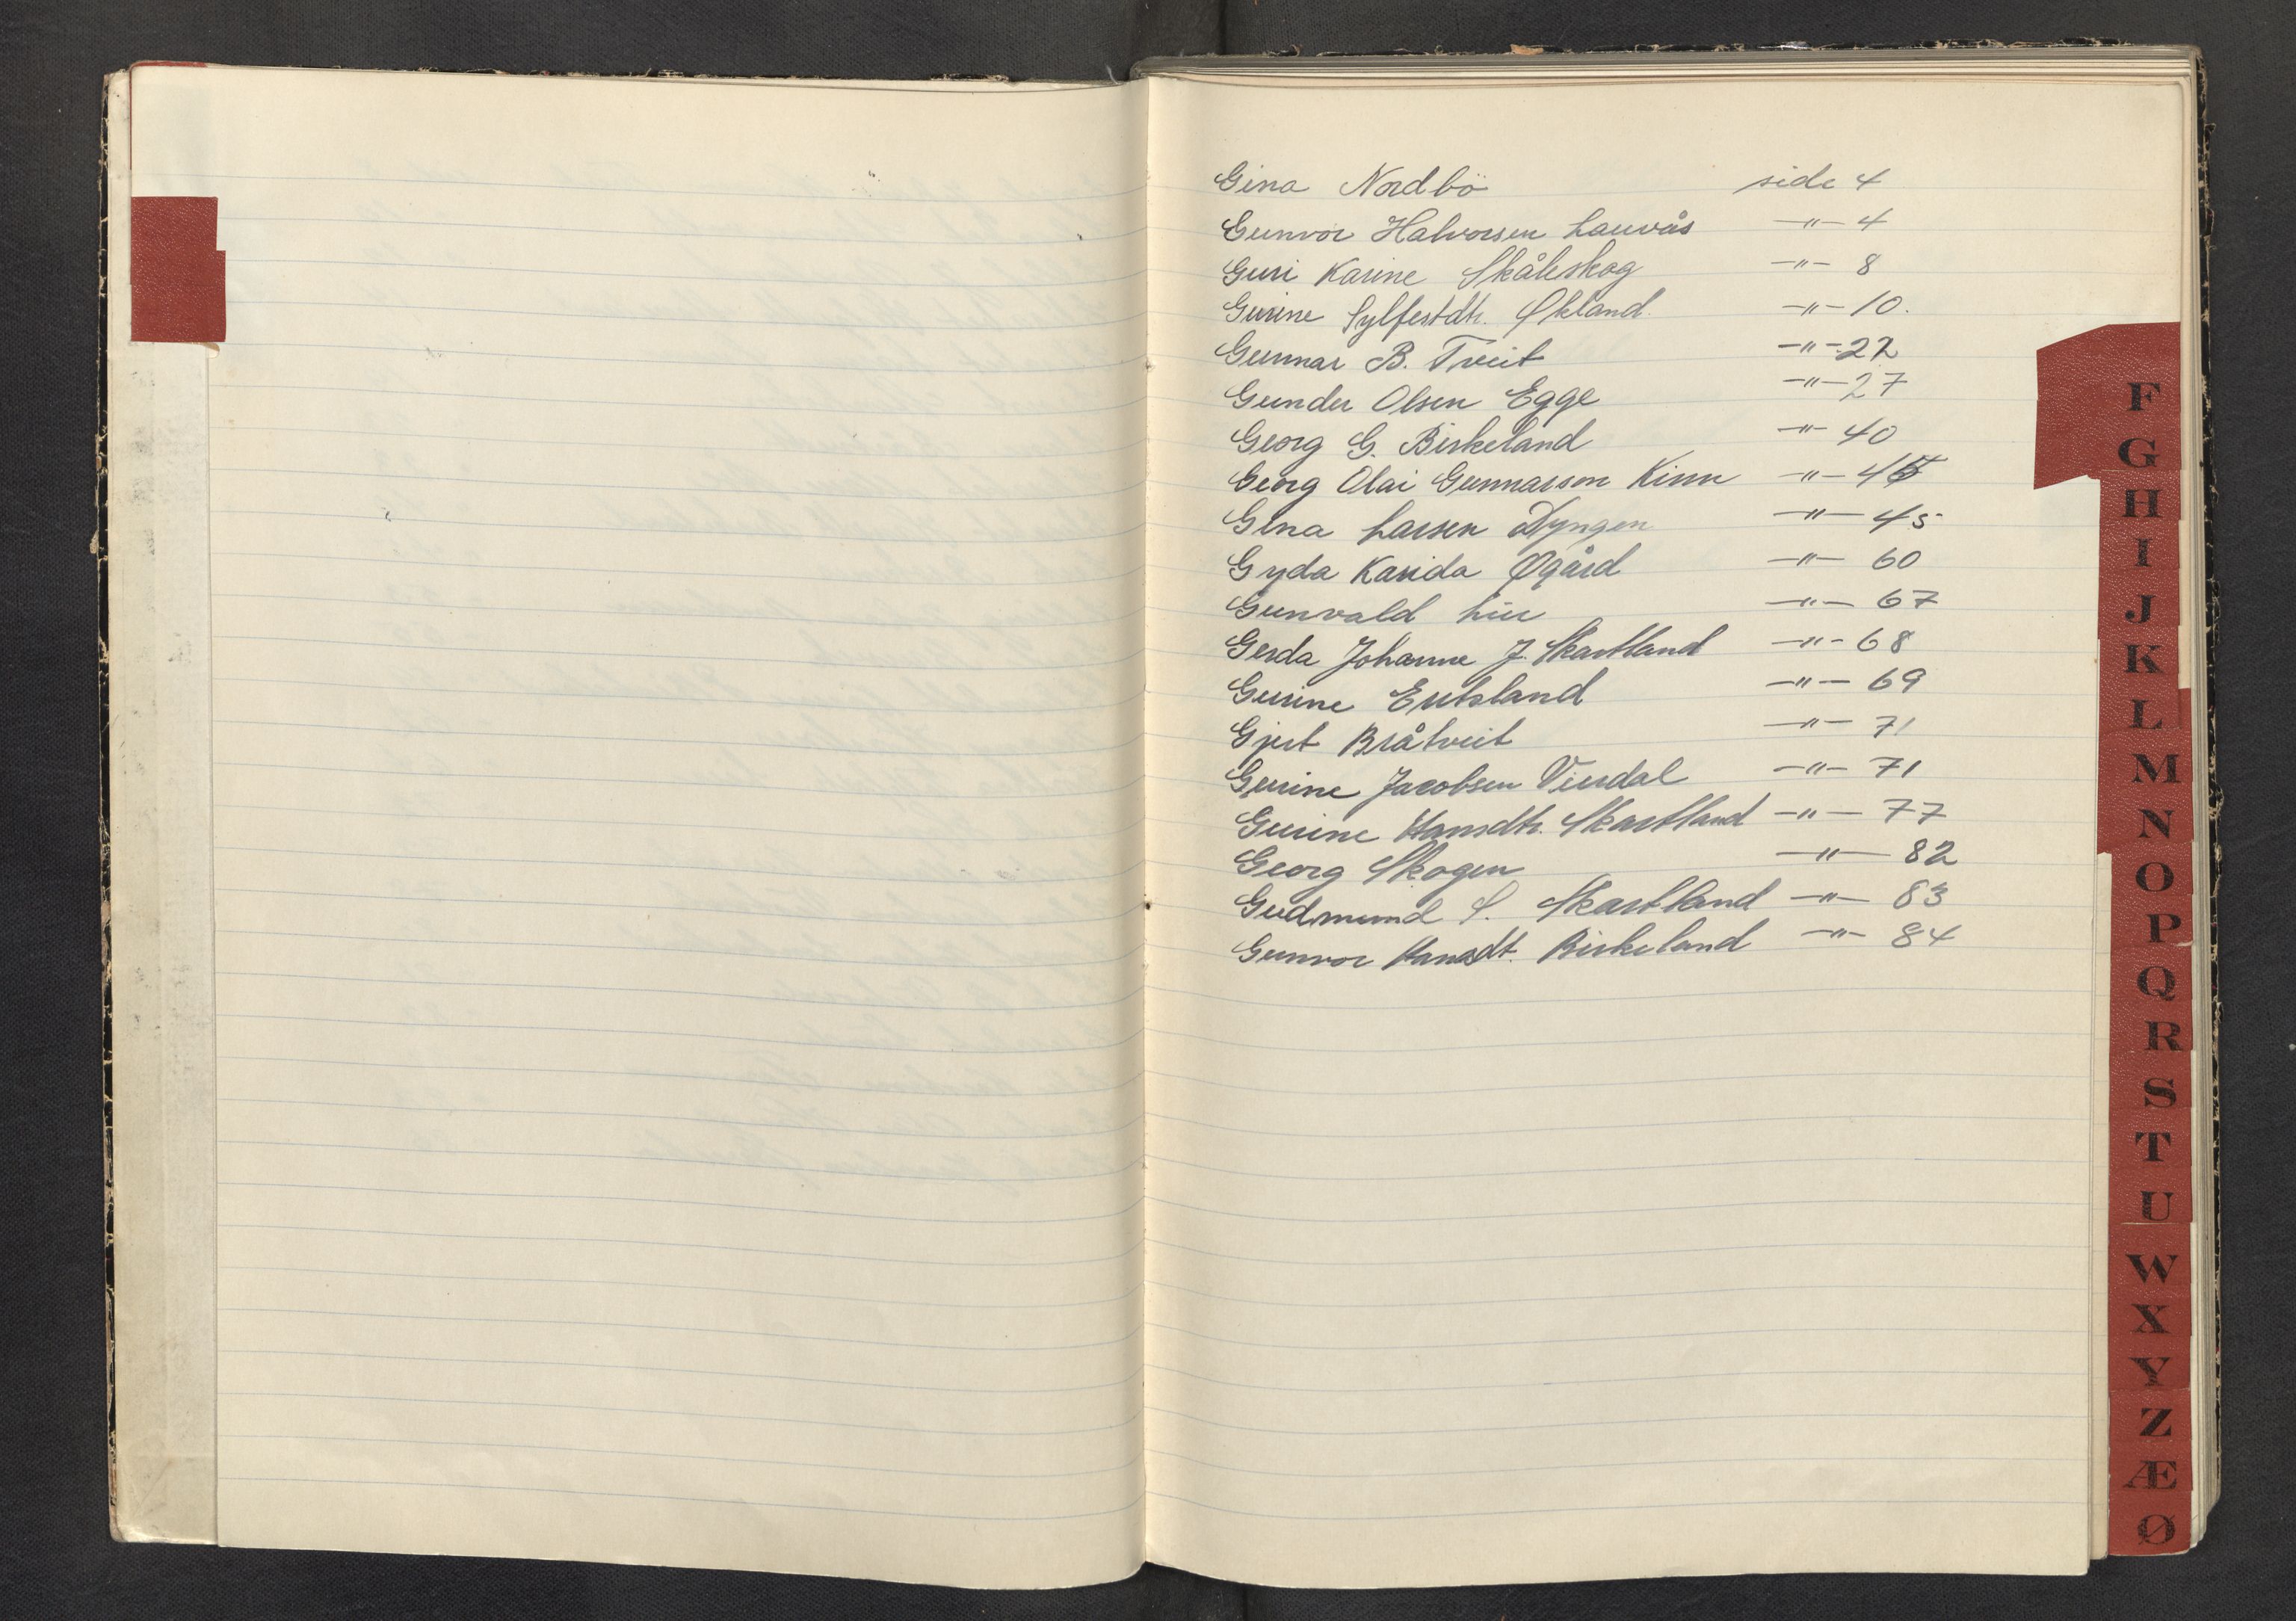 Gina Nordbö side 4
Gunvor Halvorsen Lauvås —"— 4
Guri Karine Skåleskog —"— 8
Gurine Sylfestdtr. Økland. —"— 10.
Gunnar B. Tveit —"— 22
Gunder Olsen Egge —"— 27
Georg G. Birkeland —"— 40
Georg Olai Gunnarson Kinn —"— 45
Gina Larsen Dyngen —"— 45
Gyda Karida Øgård —"— 60
Gunvald Lier —"— 67
Gerda Johanne J. Skartland —"— 68
Gurine Eriksland —"— 69
Gjert Bråtveit —"— 71
Gurine Jacobsen Vindal —"— 71
Gurine Hansdtr. Skartland —"— 77
Georg Skogen —"— 82
Gudmund S. Skartland —"— 83
Gunvor Hansdt. Birkeland —"— 84
F
G
H
I
J
K
L
M
N
O
P
Q
R
S
T
U
W
X
Y
Z
Æ
Ø